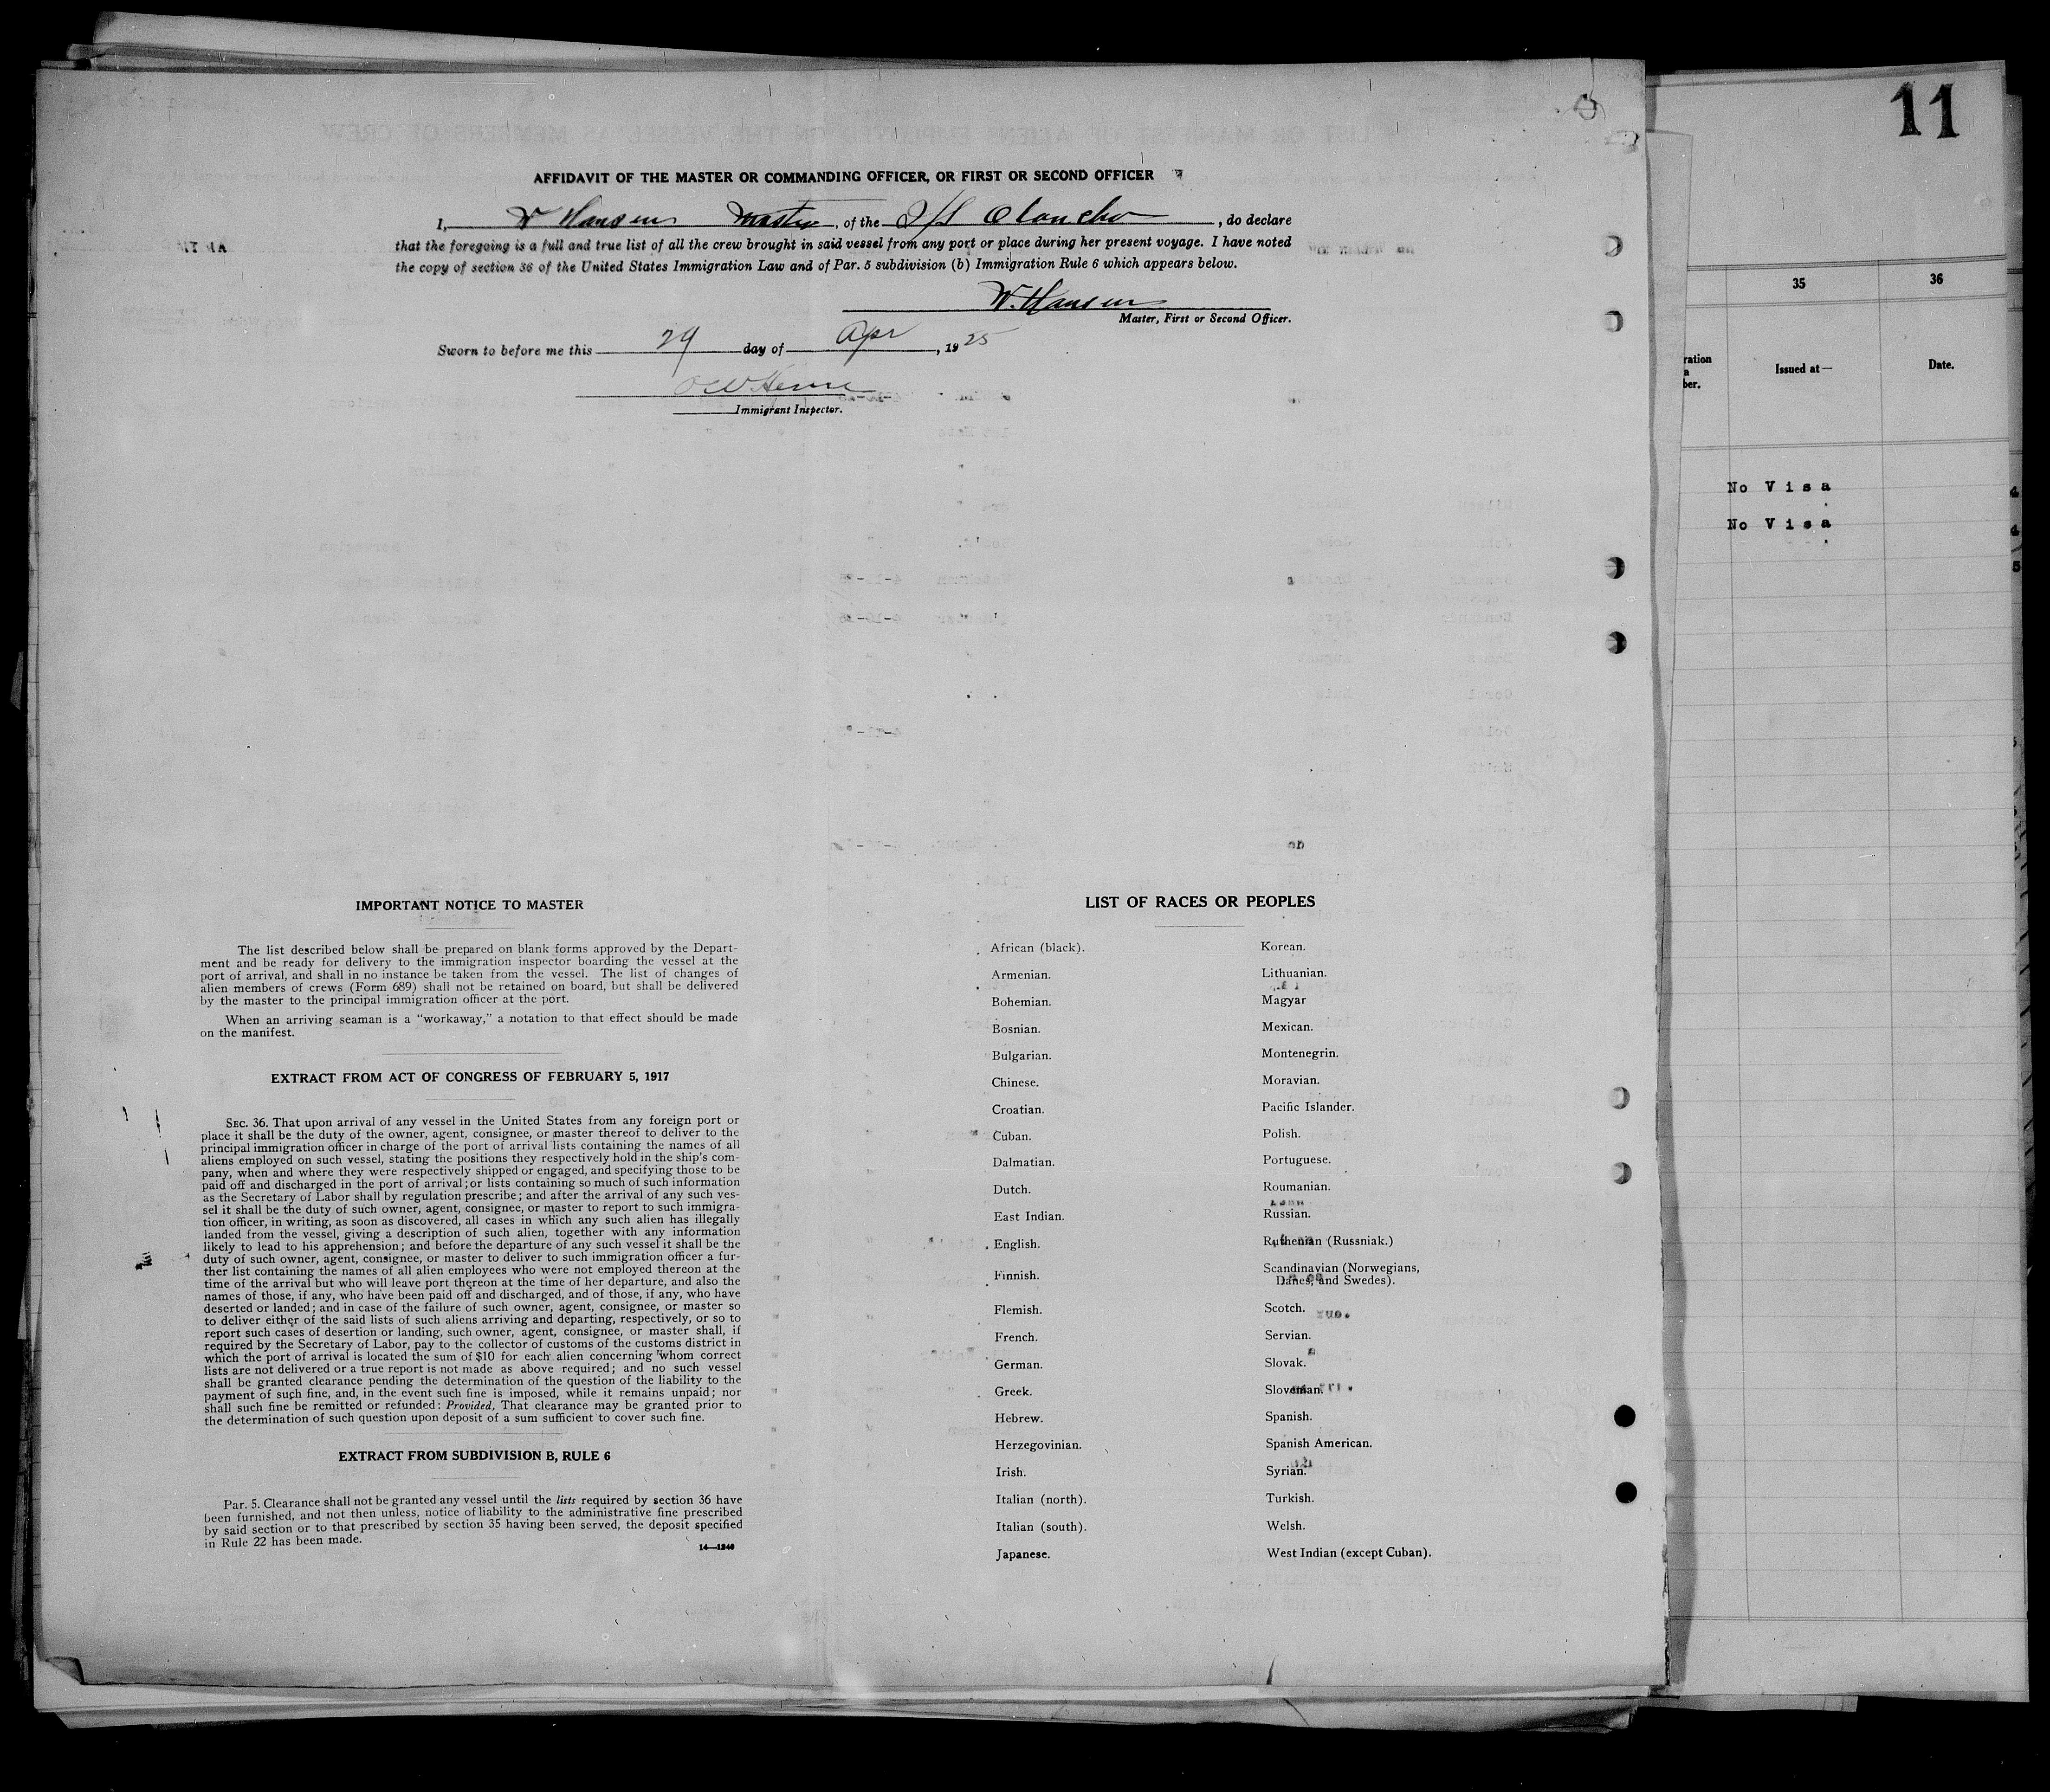 11
AFFIDAVIT OF THE MASTER OR COMMANDING OFFICER, OR FIRST OR SECOND OFFICER
I, W Hansen Master, of the S/S Olancho, do declare
that the foregoing is a full and true list of all the crew brought in said vessel from any port or place during her present voyage. I have noted
the copy of section 36 of the United States Immigration Law and of Par. 5 subdivision (b) Immigration Rule 6 which appears below.
W. Hansen
Master, First or Second Officer.
Sworn to before me this 29 day of Apr, 1925
Immigrant Inspector.
IMPORTANT NOTICE TO MASTER
The list described below shall be prepared on blank forms approved by the Depart-
ment and be ready for delivery to the immigration inspector boarding the vessel at the
port of arrival, and shall in no instance be taken from the vessel. The list of changes of
alien members of crews (Form 689) shall not be retained on board, but shall be delivered
by the master to the principal immigration officer at the port.
When an arriving seaman is a "workaway," a notation to that effect should be made
on the manifest.
EXTRACT FROM ACT OF CONGRESS OF FEBRUARY 5, 1917
SEC. 36. That upon arrival of any vessel in the United States from any foreign port or
place it shall be the duty of the owner, agent, consignee, or master thereof to deliver to the
principal immigration officer in charge of the port of arrival lists containing the names of all
aliens employed on such vessel, stating the positions they respectively hold in the ship's com-
pany, when and where they were respectively shipped or engaged, and specifying those to be
paid off and discharged in the port of arrival; or lists containing so much of such information
as the Secretary of Labor shall by regulation prescribe; and after the arrival of any such ves-
sel it shall be the duty of such owner, agent, consignee, or master to report to such immigra-
tion officer, in writing, as soon as discovered, all cases in which any such alien has illegally
landed from the vessel, giving a description of such alien, together with any information
likely to lead to his apprehension; and before the departure of any such vessel it shall be the
duty of such owner, agent, consignee, or master to deliver to such immigration officer a fur-
ther list containing the names of all alien employees who were not employed thereon at the
time of the arrival but who will leave port thereon at the time of her departure, and also the
names of those, if any, who have been paid off and discharged, and of those, if any, who have
deserted or landed; and in case of the failure of such owner, agent, consignee, or master so
to deliver either of the said lists of such aliens arriving and departing, respectively, or so to
report such cases of desertion or landing, such owner, agent, consignee, or master shall, if
required by the Secretary of Labor, pay to the collector of customs of the customs district in
which the port of arrival is located the sum of $10 for each alien concerning whom correct
lists are not delivered or a true report is not made as above required; and no such vessel
shall be granted clearance pending the determination of the question of the liability to the
payment of such fine, and, in the event such fine is imposed, while it remains unpaid; nor
shall such fine be remitted or refunded: Provided, That clearance may be granted prior to
the determination of such question upon deposit of a sum sufficient to cover such fine.
EXTRACT FROM SUBDIVISION B, RULE 6
Par. 5. Clearance shall not be granted any vessel until the lists required by section 36 have
been furnished, and not then unless, notice of liability to the administrative fine prescribed
by said section or to that prescribed by section 35 having been served, the deposit specified
in Rule 22 has been made.
14—1240
LIST OF RACES OR PEOPLES
African (black).
Armenian.
Bohemian.
Bosnian.
Bulgarian.
Chinese.
Croatian.
Cuban.
Dalmatian.
Dutch.
East Indian.
English.
Finnish.
Flemish.
French.
German.
Greek.
Hebrew.
Herzegovinian.
Irish.
Italian (north).
Italian (south).
Japanese.
Korean.
Lithuanian.
Magyar
Mexican.
Montenegrin.
Moravian.
Pacific Islander.
Polish.
Portuguese.
Roumanian.
Russian.
Ruthenian (Russniak.)
Scandinavian (Norwegians,
Danes, and Swedes).
Scotch.
Servian.
Slovak.
Slovenian.
Spanish.
Spanish American.
Syrian.
Turkish.
Welsh.
West Indian (except Cuban).
35
36
Issued at—
Date.
No Visa
No Visa